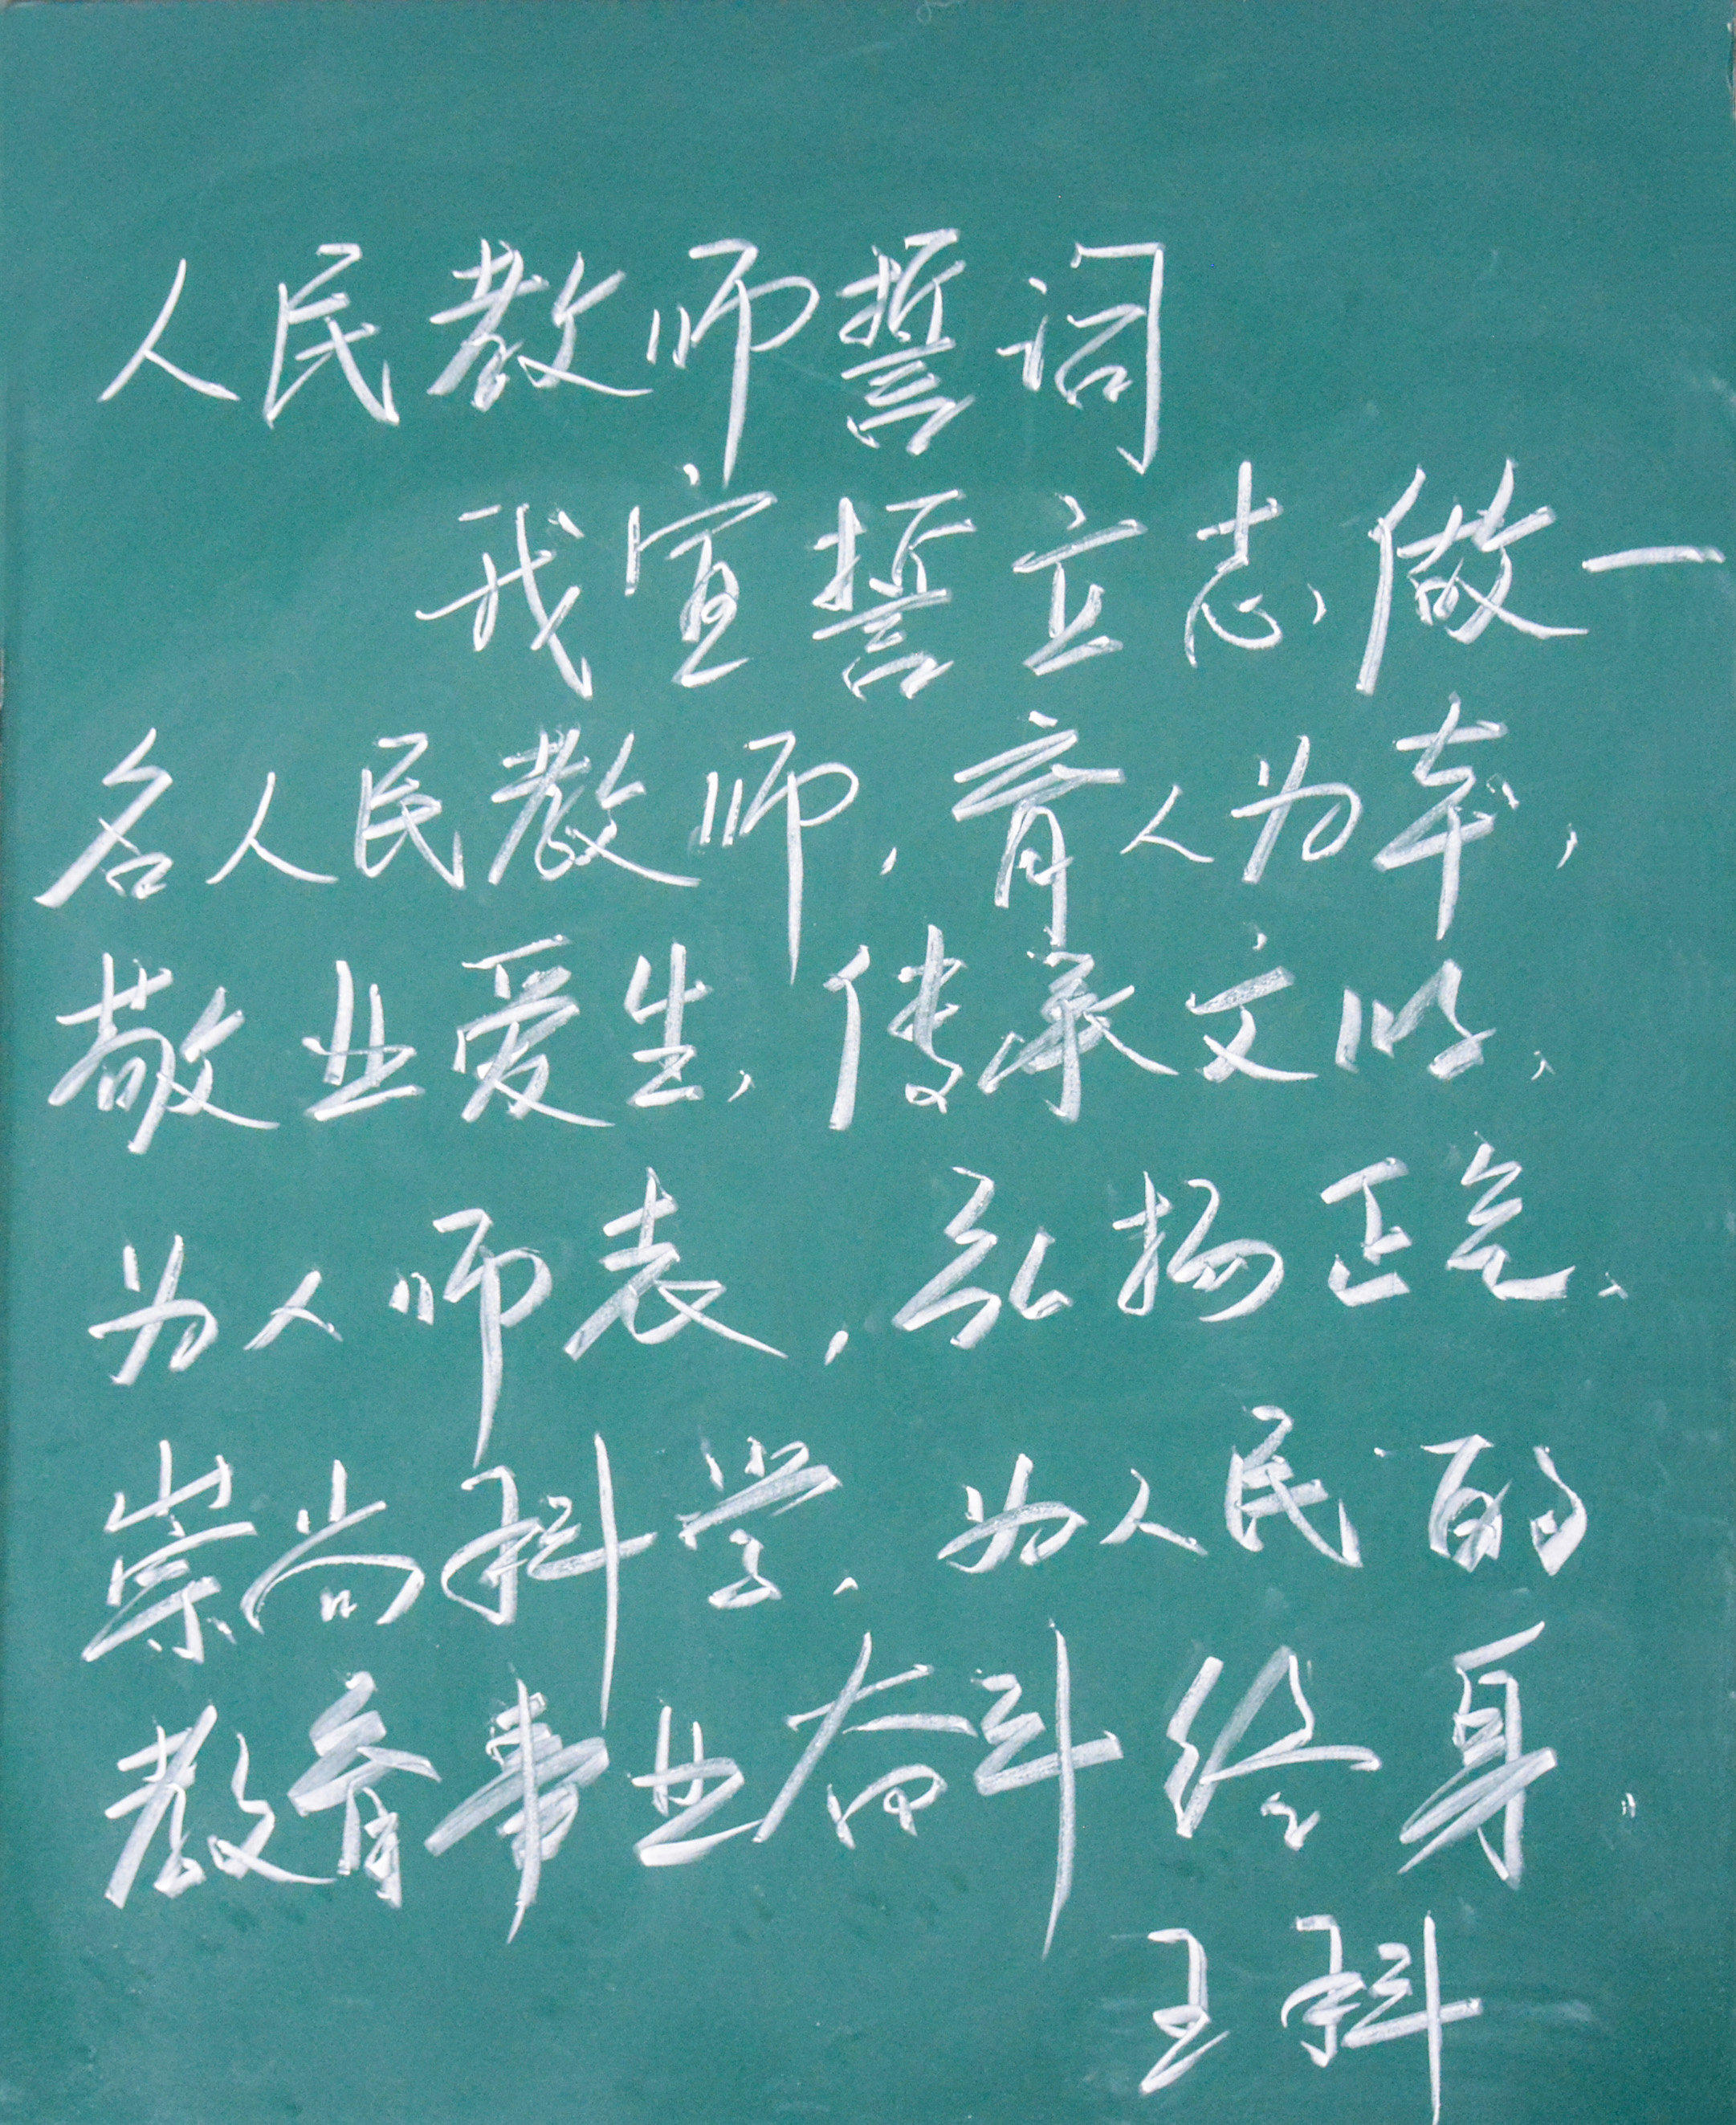 人民教师誓词
我宣誓立志,做一
名人民教师,育人为本,
敬业爱生,传承文明,
为人师表,弘扬正气,
崇尚科学,为人民的
教育事业奋斗终身.
王科